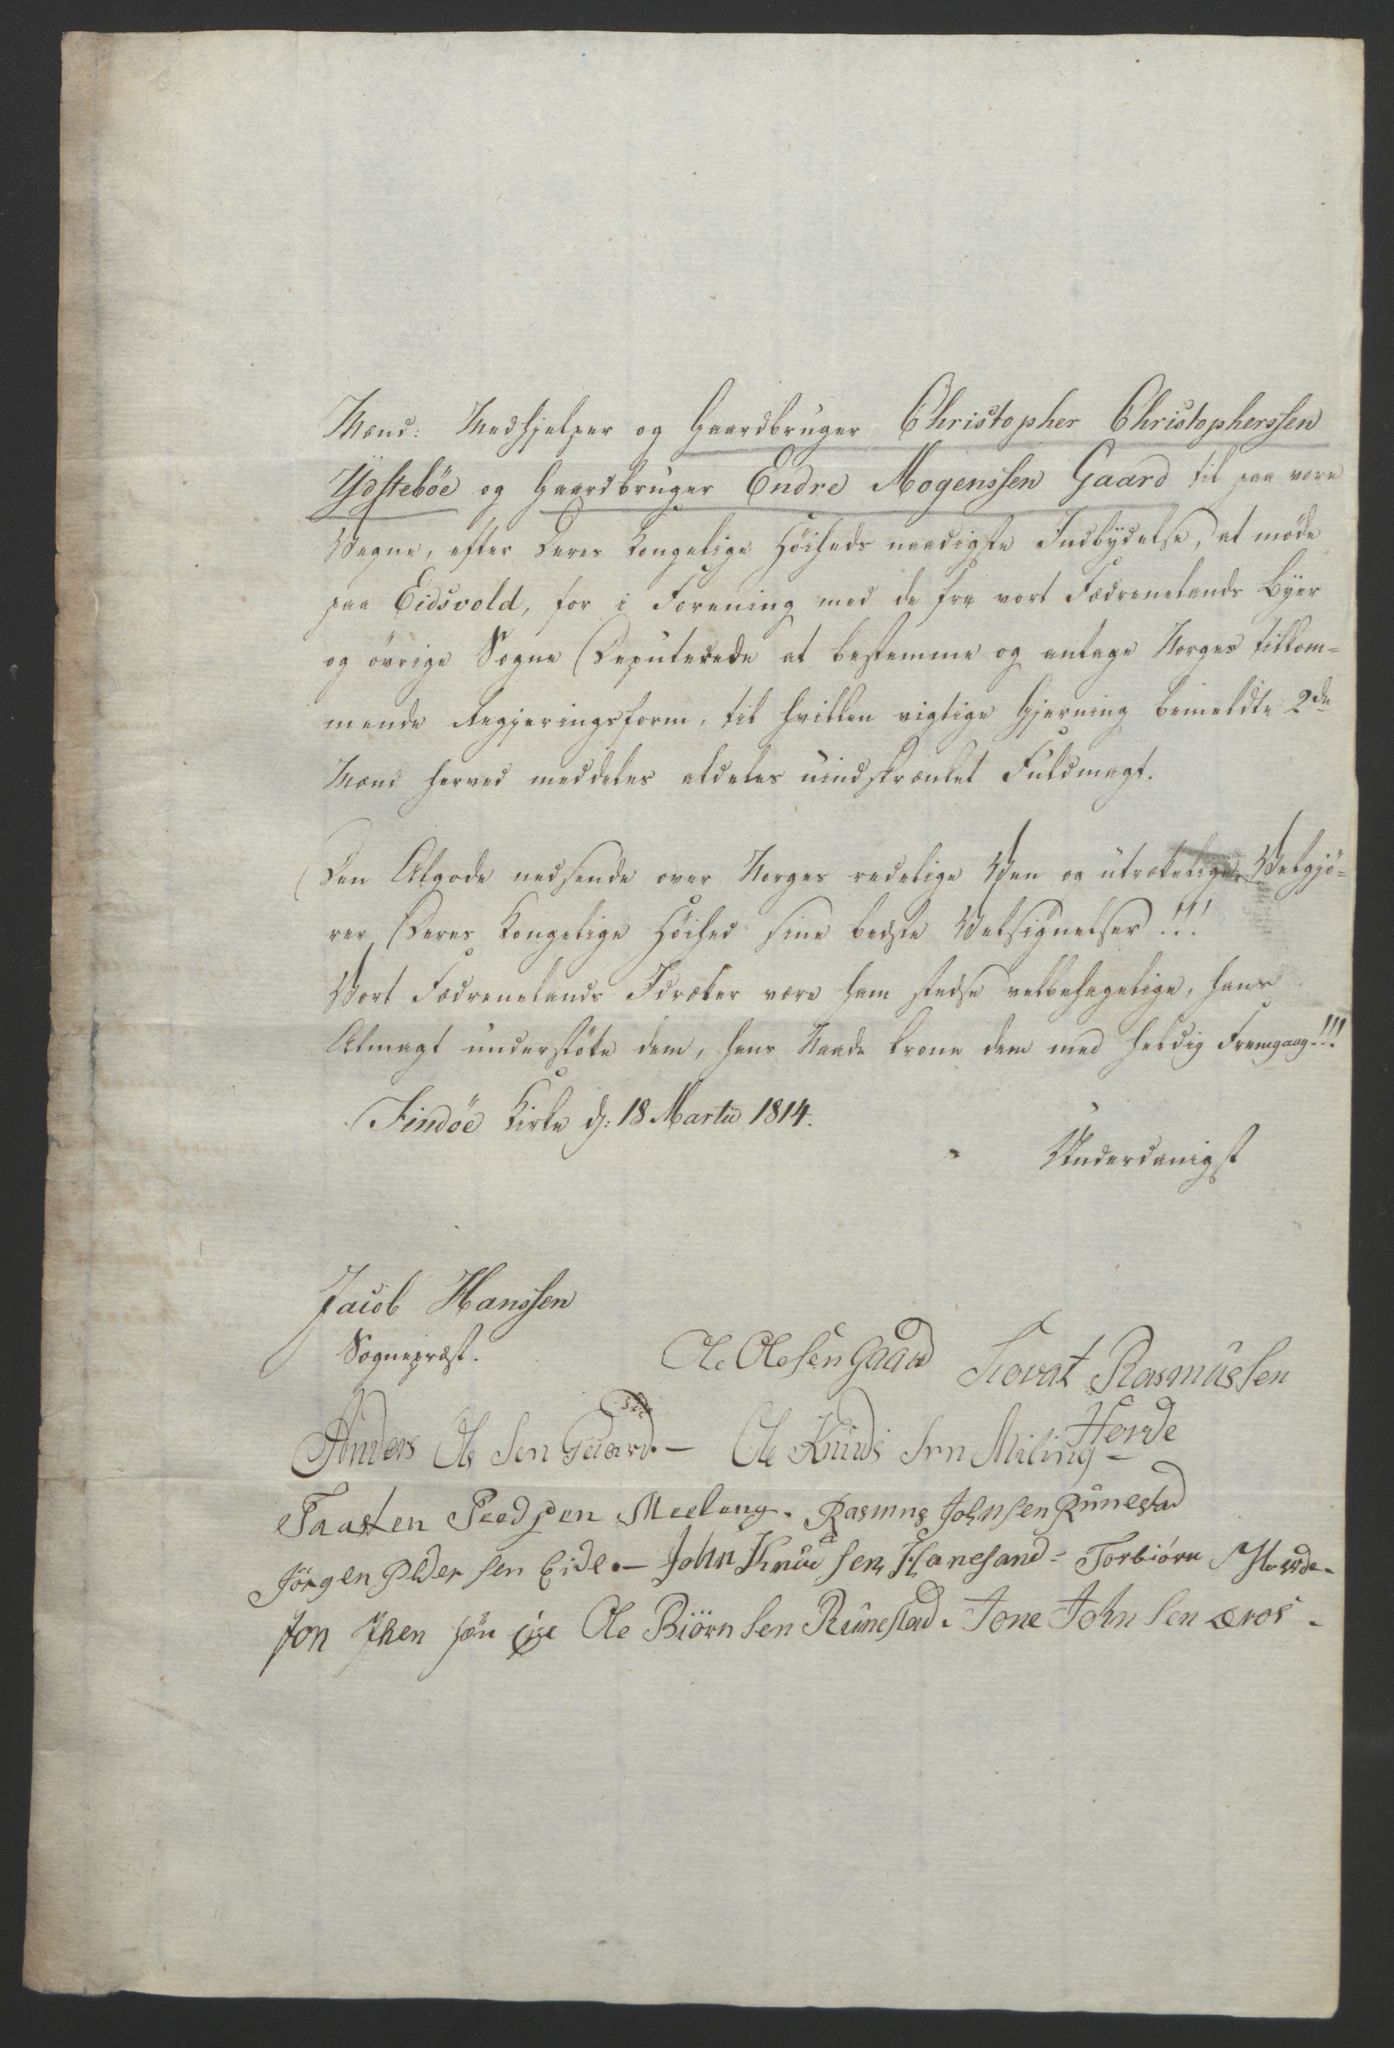 Mænd: Medhjelper og Gaardbruger Christopher Christopherssen
Ydstebøe og Gaardbruger Endre Mogenssen Gaard til paa vore
Vegne, efter Deres Kongelige Høiheds naadigste Indbydelse, at møde
paa Eidsvold, for i Forening med de fra vort Fædrenelands Byer
og øvrige Sogne Deputerede at bestemme og antage Norges tilkom-
mende Regjeringsform, til hvilken vigtige Gjerning bemeldte 2de
Mænd herved meddeles aldeles uindskrænket Fuldmagt.
Den Algode nedsende over Norges redelige Ven og utrættelige Velgjö-
rer, Deres Kongelige Høihed sine bedste Velsignelser!!!
Vort Fædrenelands Idræter være ham stedse velbehagelige, hans
Almagt understøtte dem, hans Naade krone dem med heldig Fremgang!!!
Findöe Kirke d: 18 Martii 1814.
Underdanigst
Jacob Hanssen
Sognepræst.
Ole Olesen Gaard Tovat Rasmussen
Hovde
Anders Olsen Gaard – Ole Knudssen Miling
Taasten Peedsen Meeling. Rasmus Johnsen Runestad
Jörgen Pedersen Eide. – John Knudsen Hanesand – Torbiörn Hovde.
Jon Ole Biörnsen Runestad. Jone Johnsen